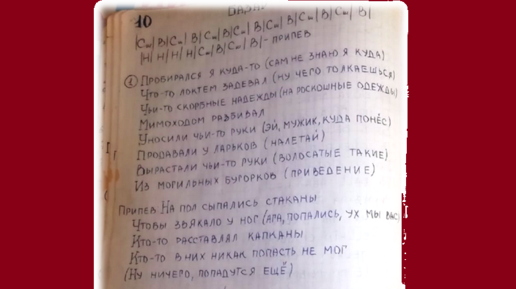 10
|Cm| B| Cm| B| Cm| B| Cm| B| Cm| B| Cm| B| Cm| B|
|H| H| H| H| Cm| B| Cm| B| Cm| B|- ПРИПЕВ
① ПРОБИРАЛСЯ Я КУДА-ТО (САМ НЕ ЗНАЮ Я КУДА)
ЧТО-ТО ЛОКТЕМ ЗАДЕВАЛ (НУ ЧЕГО ТОЛКАЕШЬСЯ)
ЧЬИ-ТО СКОРБНЫЕ НАДЕЖДЫ (НА РОСКОШНЫЕ ОДЕЖДЫ)
МИМОХОДОМ РАЗБИВАЛ
УНОСИЛИ ЧЬИ-ТО РУКИ (ЭЙ, МУЖИК, КУДА ПОНЁС)
ПРОДАВАЛИ У ЛАРЬКОВ (НАЛЕТАЙ)
ВЫРАСТАЛИ ЧЬИ-ТО РУКИ (ВОЛОСАТЫЕ ТАКИЕ)
ИЗ МОГИЛЬНЫХ БУГОРКОВ (ПРИВЕДЕНИЕ)
ПРИПЕВ: НА ПОЛ СЫПАЛИСЬ СТАКАНЫ
ЧТОБЫ ЗВЯКАЛО У НОГ (АГА, ПОПАЛИСЬ, УХ МЫ ВАС)
КТО-ТО РАССТАВЛЯЛ КАПКАНЫ
КТО-ТО В НИХ НИКАК ПОПАСТЬ НЕ МОГ
(НУ НИЧЕГО, ПОПАДУТСЯ ЕЩЁ)